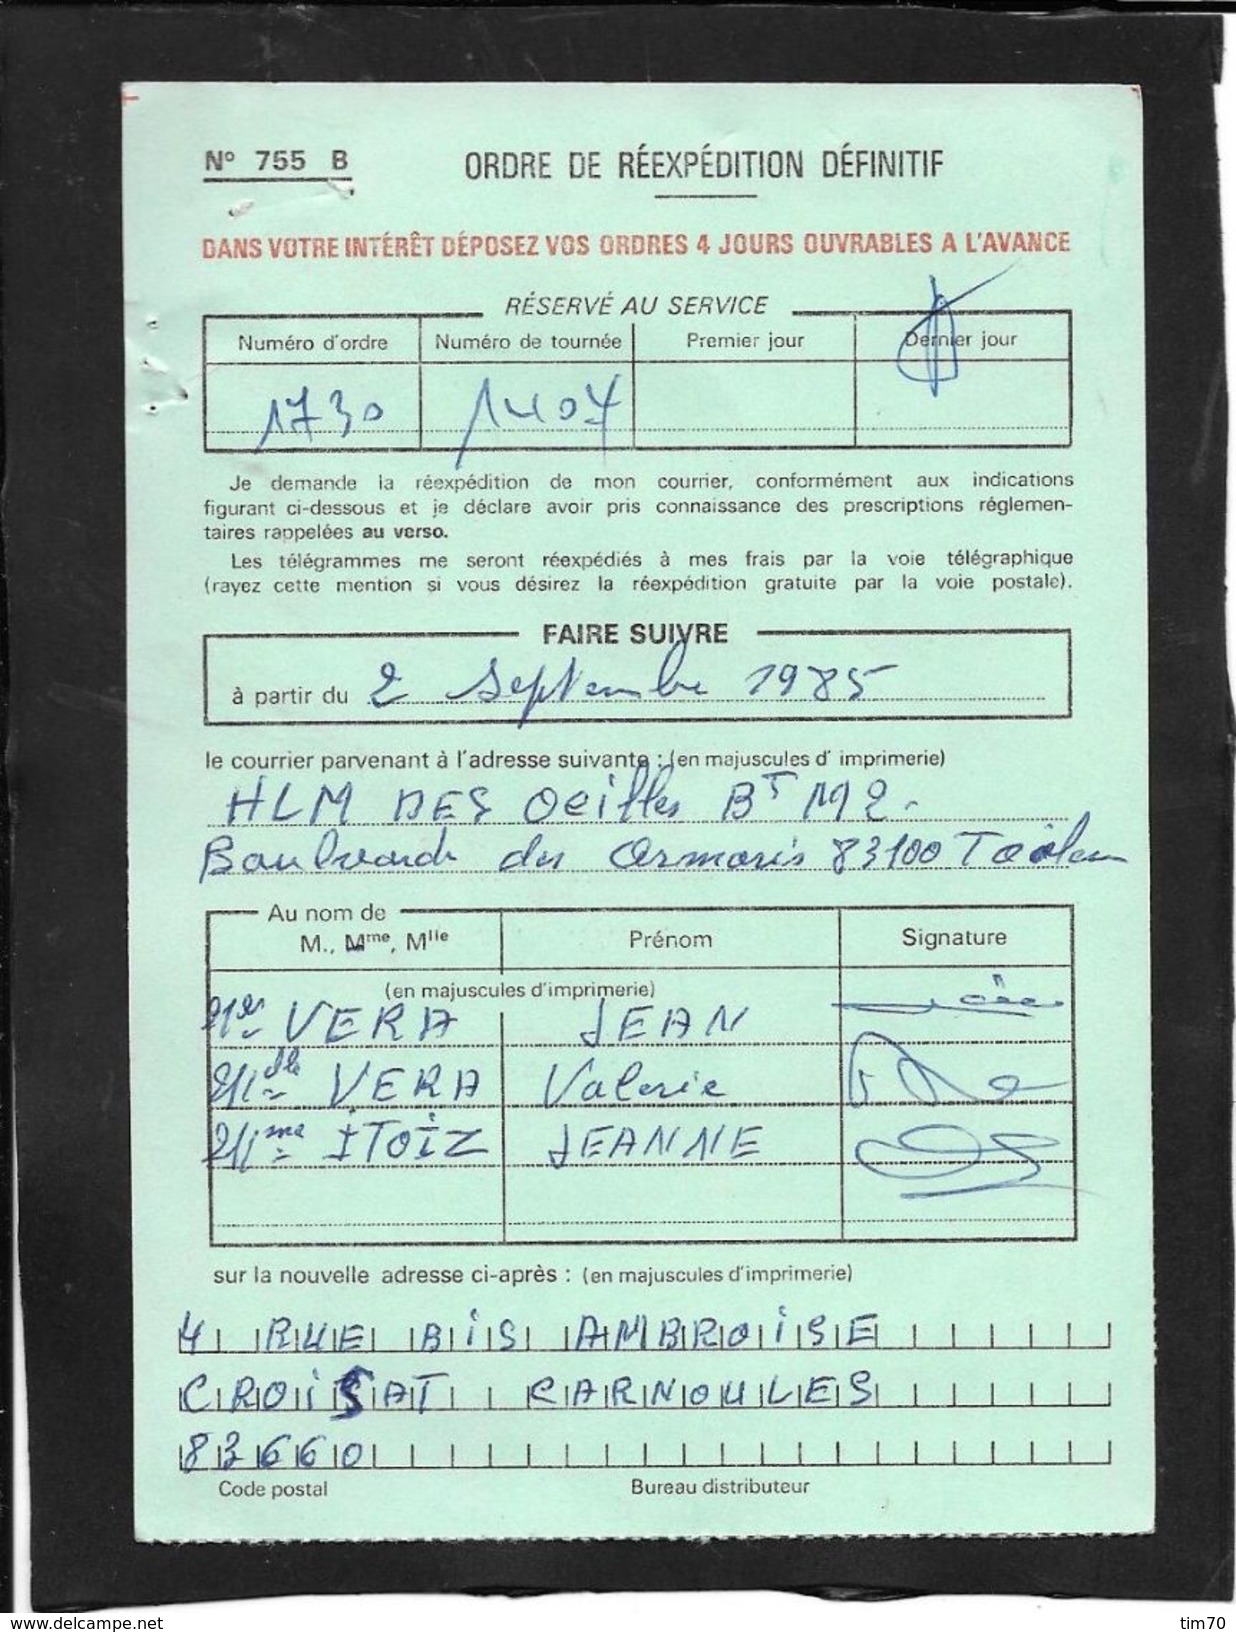 N° 755 B
ORDRE DE RÉEXPÉDITION DÉFINITIF
DANS VOTRE INTÉRÊT DÉPOSEZ VOS ORDRES 4 JOURS OUVRABLES A L'AVANCE
RÉSERVÉ AU SERVICE
Numéro d'ordre Numéro de tournée Premier jour Dernier jour
1730 1407
Je demande la réexpédition de mon courrier, conformément aux indications
figurant ci-dessous et je déclare avoir pris connaissance des prescriptions réglemen-
taires rappelées au verso.
Les télégrammes me seront réexpédiés à mes frais par la voie télégraphique
(rayez cette mention si vous désirez la réexpédition gratuite par la voie postale).
FAIRE SUIVRE
à partir du 2 Septembre 1985
le courrier parvenant à l'adresse suivante : (en majuscules d'imprimerie)
HLM DES Oeillles BT M2
Boulevard des Armaris 83100 Toulon
Au nom de
M., Mme, Mlle Prénom Signature
(en majuscules d'imprimerie)
VERA JEAN
VERA Valerie
Mme ITOIZ JEANNE
sur la nouvelle adresse ci-après : (en majuscules d'imprimerie)
4 RUE BIS AMBROISE
CROISAT CARNOULES
83660
Code postal Bureau distributeur
www.delcampe.net
tim70